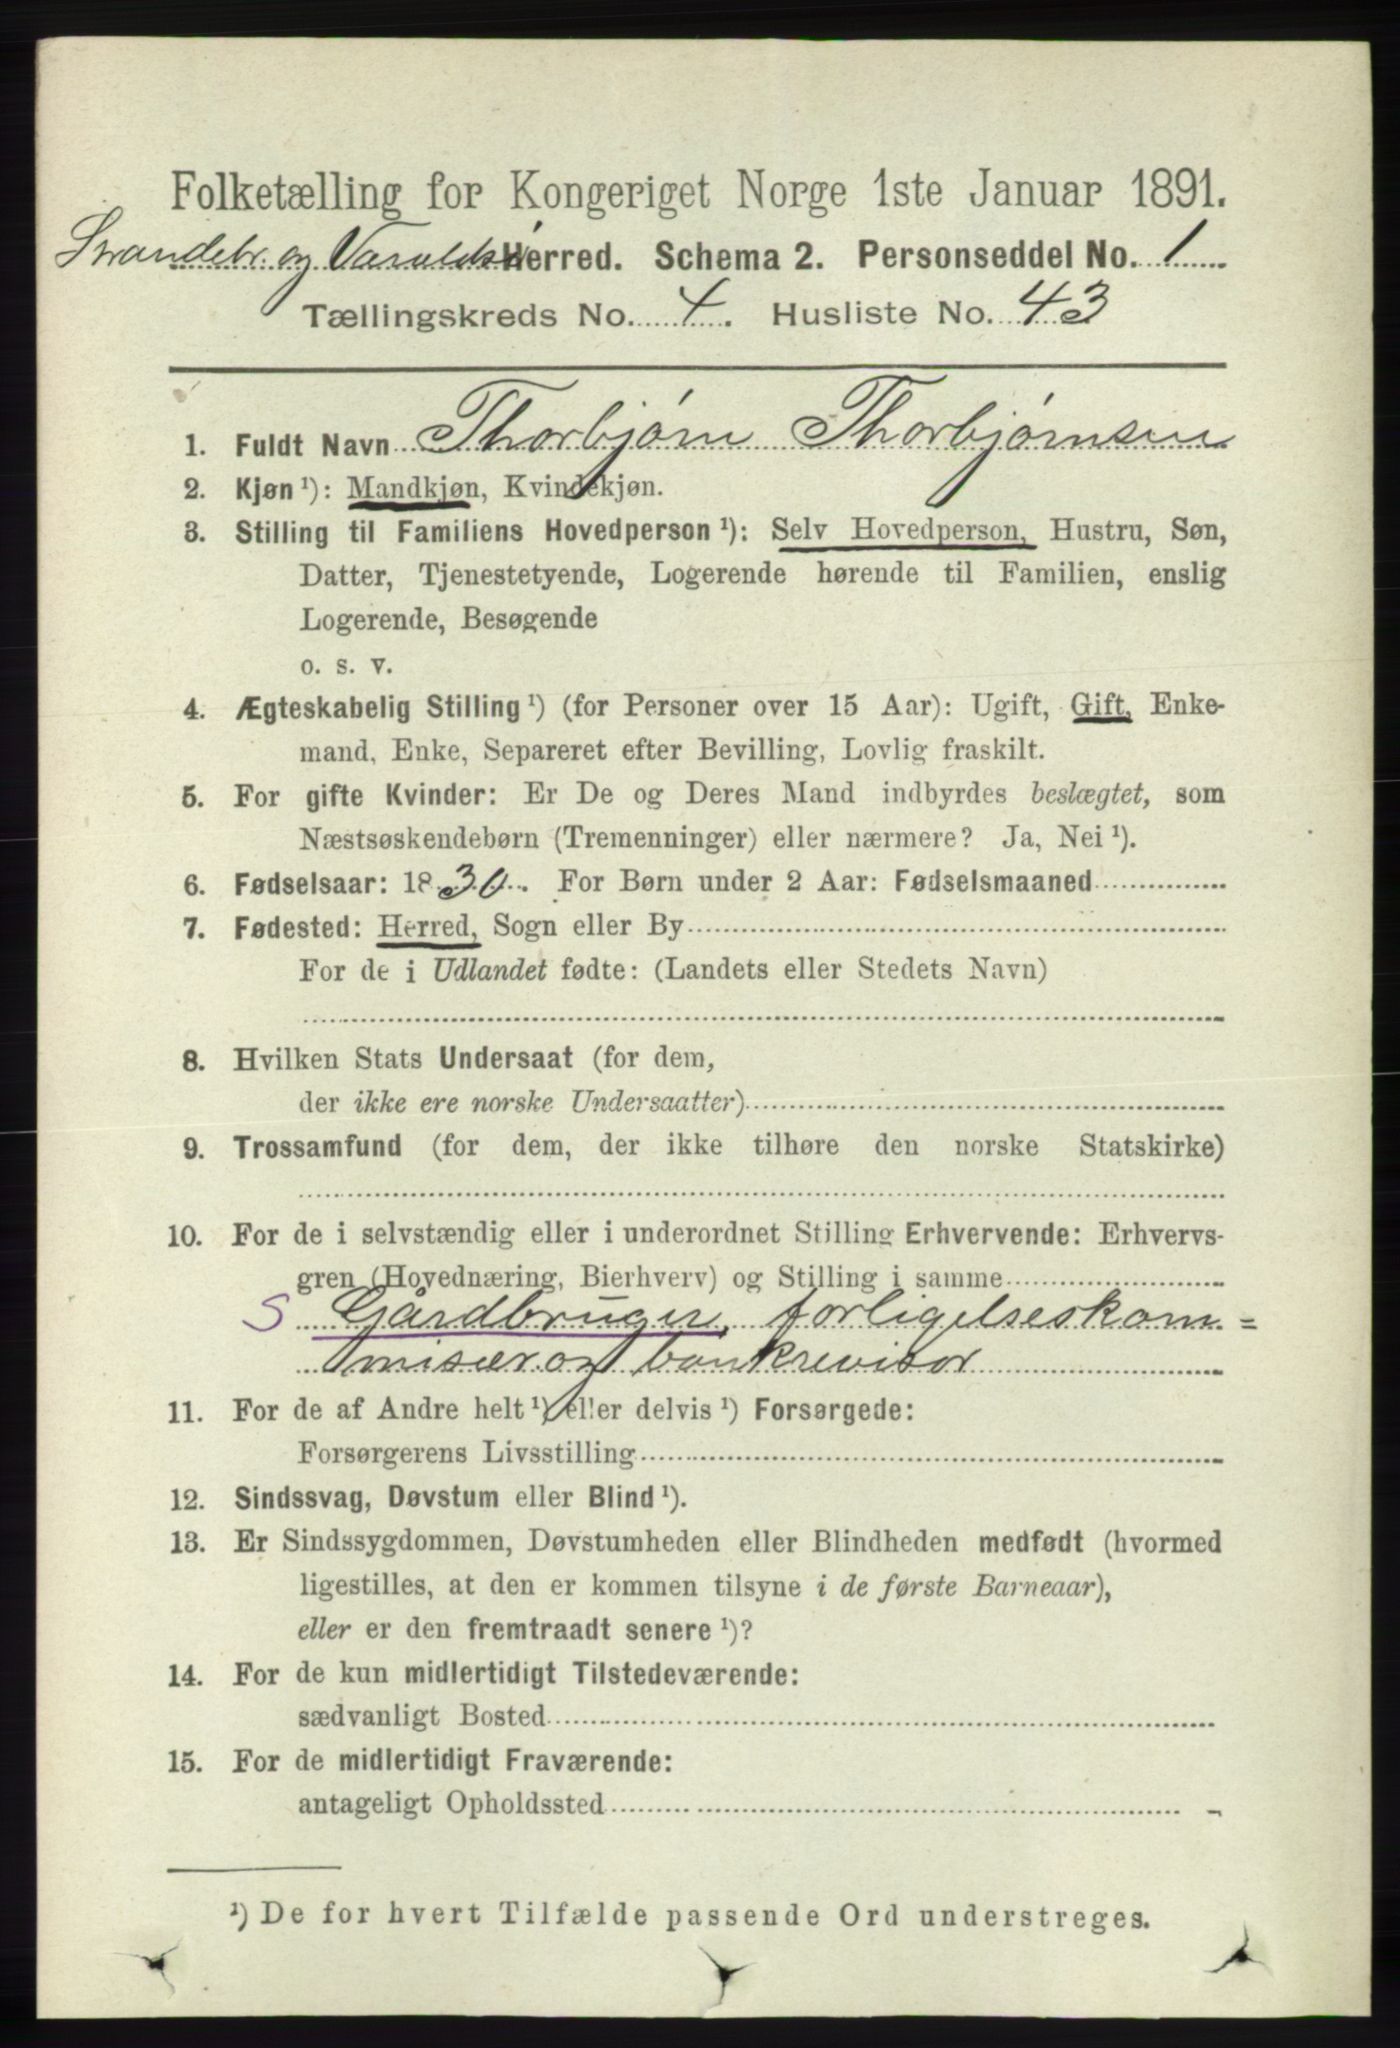 Folketælling for Kongeriget Norge 1ste Januar 1891.
Strandebr. og Varaldsø Herred. Schema 2. Personseddel No. 1
Tællingskreds No. 4. Husliste No. 43
1. Fuldt Navn Thorbjørn Thorbjørnsen
2. Kjøn ¹): Mandkjøn, Kvindekjøn.
3. Stilling til Familiens Hovedperson ¹): Selv Hovedperson, Hustru, Søn,
Datter, Tjenestetyende, Logerende hørende til Familien, enslig
Logerende, Besøgende
o. s. v.
4. Ægteskabelig Stilling ¹) (for Personer over 15 Aar): Ugift, Gift, Enke-
mand, Enke, Separeret efter Bevilling, Lovlig fraskilt.
5. For gifte Kvinder: Er De og Deres Mand indbyrdes beslægtet, som
Næstsøskendebørn (Tremenninger) eller nærmere? Ja, Nei ¹).
6. Fødselsaar: 1830. For Børn under 2 Aar: Fødselsmaaned
7. Fødested: Herred, Sogn eller By
For de i Udlandet fødte: (Landets eller Stedets Navn)
8. Hvilken Stats Undersaat (for dem,
der ikke ere norske Undersaatter)
9. Trossamfund (for dem, der ikke tilhøre den norske Statskirke)
10. For de i selvstændig eller i underordnet Stilling Erhvervende: Erhvervs-
gren (Hovednæring, Bierhverv) og Stilling i samme
S Gårdbruger, forligelseskom=
misær og bankrevisor
11. For de af Andre helt ¹) eller delvis ¹) Forsørgede:
Forsørgerens Livsstilling
12. Sindssvag, Døvstum eller Blind ¹).
13. Er Sindssygdommen, Døvstumheden eller Blindheden medfødt (hvormed
ligestilles, at den er kommen tilsyne i de første Barneaar),
eller er den fremtraadt senere ¹)?
14. For de kun midlertidigt Tilstedeværende:
sædvanligt Bosted
15. For de midlertidigt Fraværende:
antageligt Opholdssted
¹) De for hvert Tilfælde passende Ord understreges.